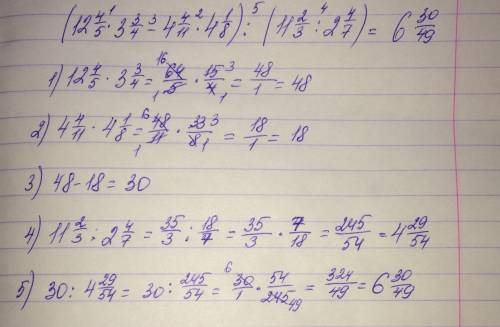 (12 4/5 · 3 3/4 − 4 4/11 · 4 1/8) : (11 2/3 : 2 4/7) = 6 30/49
1) 12 4/5 · 3 3/4 = 64/5 · 15/4 = 48/1 = 48
2) 4 4/11 · 4 1/8 = 48/11 · 33/8 = 18/1 = 18
3) 48 − 18 = 30
4) 11 2/3 : 2 4/7 = 35/3 : 18/7 = 35/3 · 7/18 = 245/54 = 4 29/54
5) 30 : 4 29/54 = 30 : 245/54 = 30/1 · 54/245 = 324/49 = 6 30/49